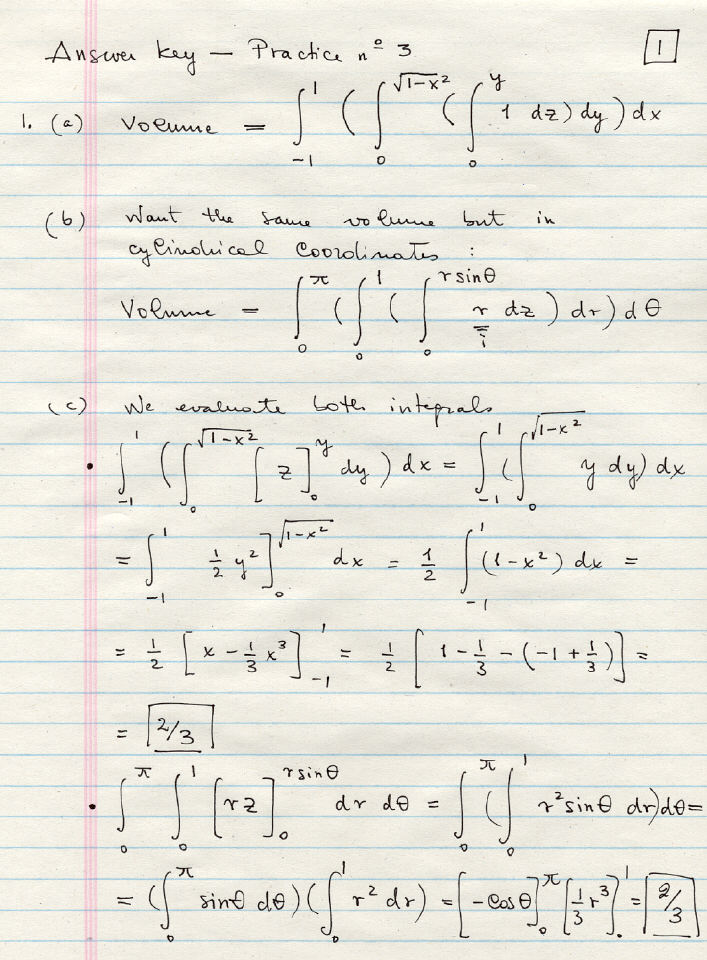 Answer key — Practice nº 3 1
1. (a) Volume = ∫_{-1}^{1} ( ∫_{0}^{√(1-x²)} ( ∫_{0}^{y} 1 dz) dy ) dx
(b) Want the same volume but in
cylindrical coordinates :
Volume = ∫_{0}^{π} ( ∫_{0}^{1} ( ∫_{0}^{r sinθ} r dz ) dr) dθ
!
(c) We evaluate both integrals
• ∫_{-1}^{1} ( ∫_{0}^{√(1-x²)} [ z ]_{0}^{y} dy ) dx = ∫_{-1}^{1} ( ∫_{0}^{√(1-x²)} y dy) dx
= ∫_{-1}^{1} ½ y² ]_{0}^{√(1-x²)} dx = ½ ∫_{-1}^{1} (1-x²) dx =
= ½ [ x - ⅓ x³ ]_{-1}^{1} = ½ [ 1 - ⅓ - (-1 + ⅓) ] =
= 2/3
• ∫_{0}^{π} ∫_{0}^{1} [ r z ]_{0}^{r sinθ} dr dθ = ∫_{0}^{π} ( ∫_{0}^{1} r² sinθ dr) dθ =
= ( ∫_{0}^{π} sinθ dθ ) ( ∫_{0}^{1} r² dr ) = [ -cosθ ]_{0}^{π} [ ⅓ r³ ]_{0}^{1} = 2/3